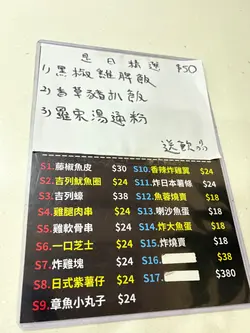 是日精選 $50
1) 黑椒雞脾飯
2) 香草豬扒飯
3) 羅宋湯通粉
送飲品
S1.藤椒魚皮 $30
S2.吉列魷魚圈 $24
S3.吉列蠔 $38
S4.雞腿肉串 $24
S5.雞軟骨串 $24
S6.一口芝士 $24
S7.炸雞塊 $24
S8.日式紫薯仔 $24
S9.章魚小丸子 $24
S10.香辣炸雞翼 $24
S11.炸日本薯條 $24
S12.魚蓉燒賣 $18
S13.喇沙魚蛋 $18
S14.炸大魚蛋 $18
S15.炸燒賣 $18
S16. $38
S17. $380